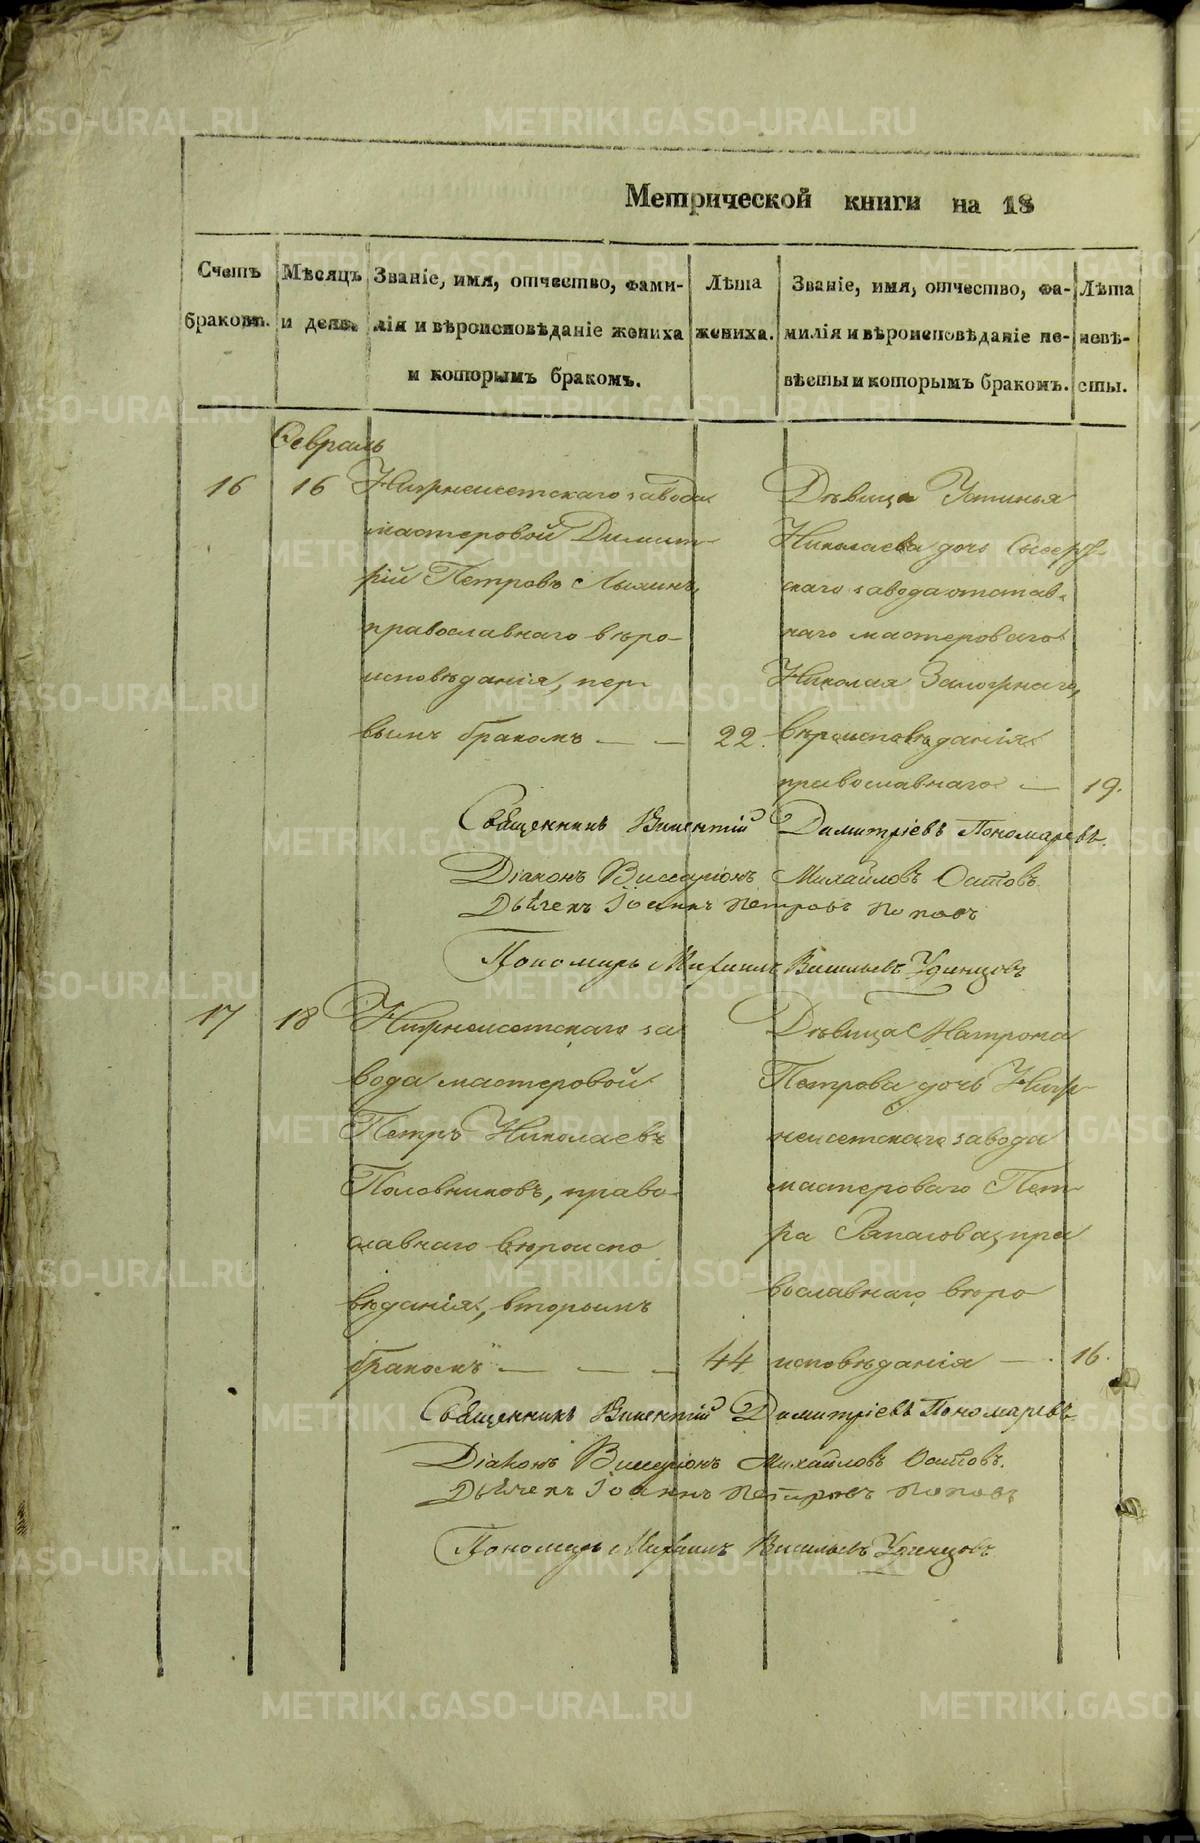 Метрической книги на 18
Счетъ
браковъ.
Мѣсяцъ
и день.
Званіе, имя, отчество, фами-
лія и вѣроисповѣданіе жениха
и которымъ бракомъ.
Лѣта
жениха.
Званіе, имя, отчество, фа-
милія и вѣроисповѣданіе не-
вѣсты и которымъ бракомъ.
Лѣта
невѣ-
сты.
Февраль
16
16
Нижнеисетскаго завода
мастеровой Димит-
рій Петровъ
православнаго вѣро-
исповѣданія, пер-
вымъ бракомъ — —
22.
Дѣвица Устинья
Николаева дочь Сысерт-
скаго завода отстав-
наго мастероваго
Николая
вѣроисповѣданія
православнаго —
19.
Священникъ Викентій Димитріевъ Пономаревъ.
Діаконъ Виссаріонъ Михайловъ
Дьячекъ Іоаннъ Петровъ Поповъ
Пономарь Михаилъ Васильевъ Удинцовъ
17
18
Нижнеисетскаго за
вода мастеровой
Петръ Николаевъ
Половниковъ, право-
славнаго вѣроиспо
вѣданія, вторымъ
бракомъ — — —
44
Дѣвица Матрона
Петрова дочь Ниж-
неисетскаго завода
мастероваго Пет-
ра пра
вославнаго вѣро
исповѣданія — .
16.
Священникъ Викентій Димитріевъ Пономаревъ.
Діаконъ Виссаріонъ Михайловъ
Дьячекъ Іоаннъ Петровъ Поповъ
Пономарь Михаилъ Васильевъ Удинцовъ
METRIKI.GASO-URAL.RU